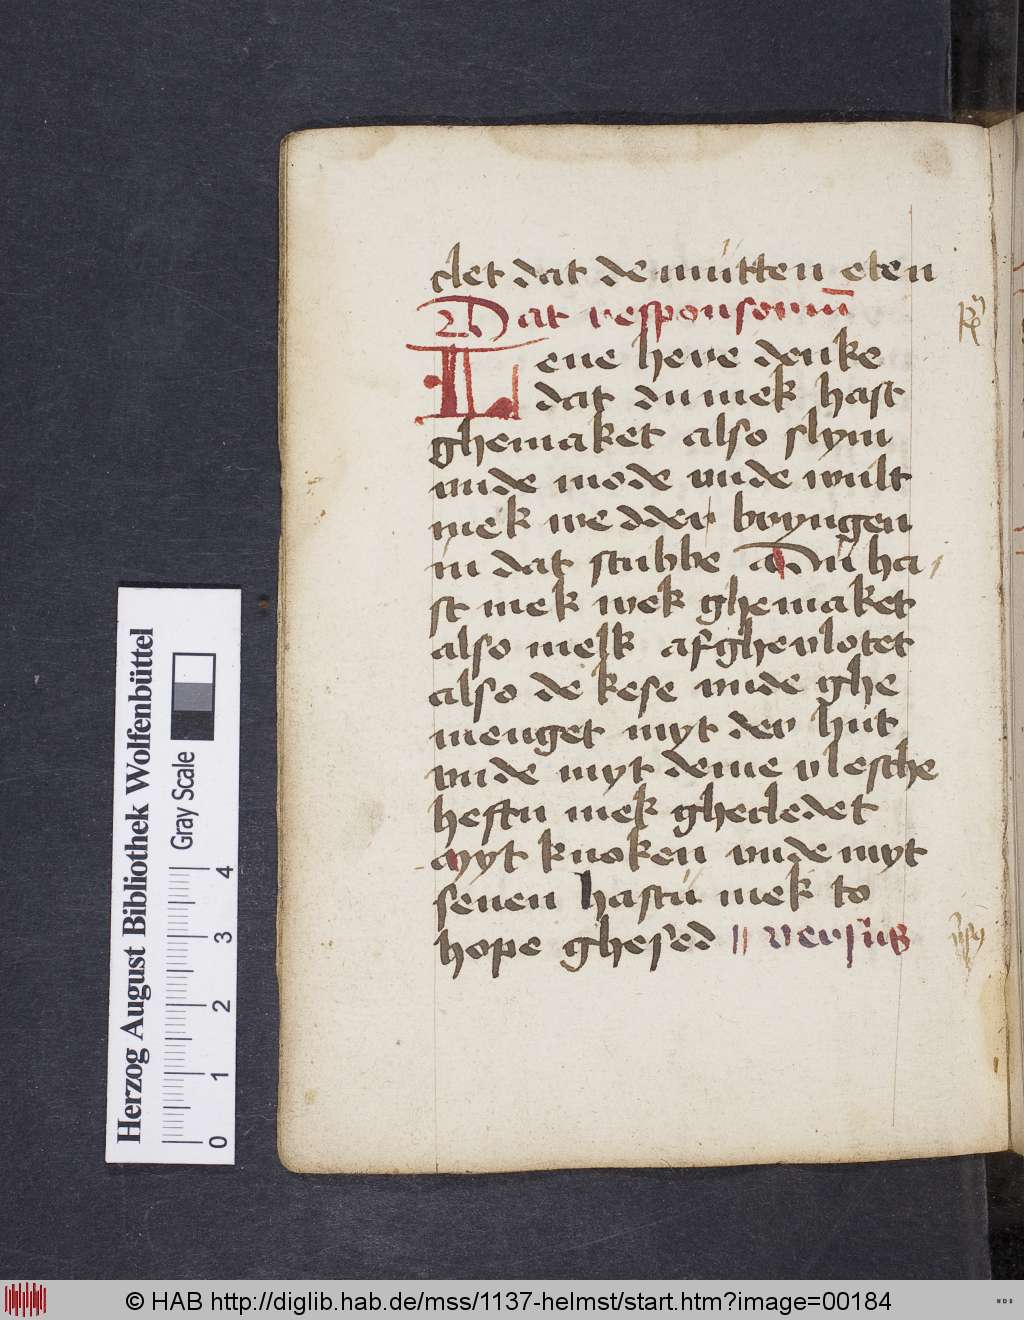 clet dat de mutten eten
Dat responsorium̄
Leue here denke
dat du mek hast
ghemaket also slym
unde mode unde wult
mek wedder bryngen
in dat stubbe Du ha
st mek wek ghemaket
also melk afghevlotet
also de kese unde ghe
menget myt der hut
unde myt deme vlesche
heftu mek ghecledet
Myt knoken unde myt
senen hastu mek to
hope ghesed || versus
Herzog August Bibliothek Wolfenbüttel
Gray Scale
0 1 2 3 4
© HAB http://diglib.hab.de/mss/1137-helmst/start.htm?image=00184